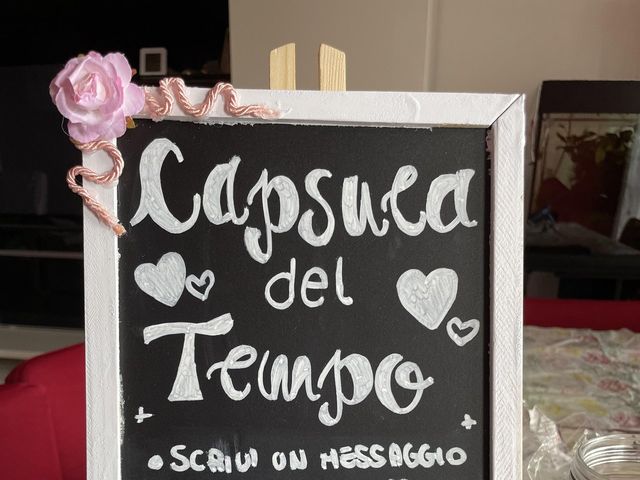 Capsula
del
Tempo
• SCRIVI UN MESSAGGIO